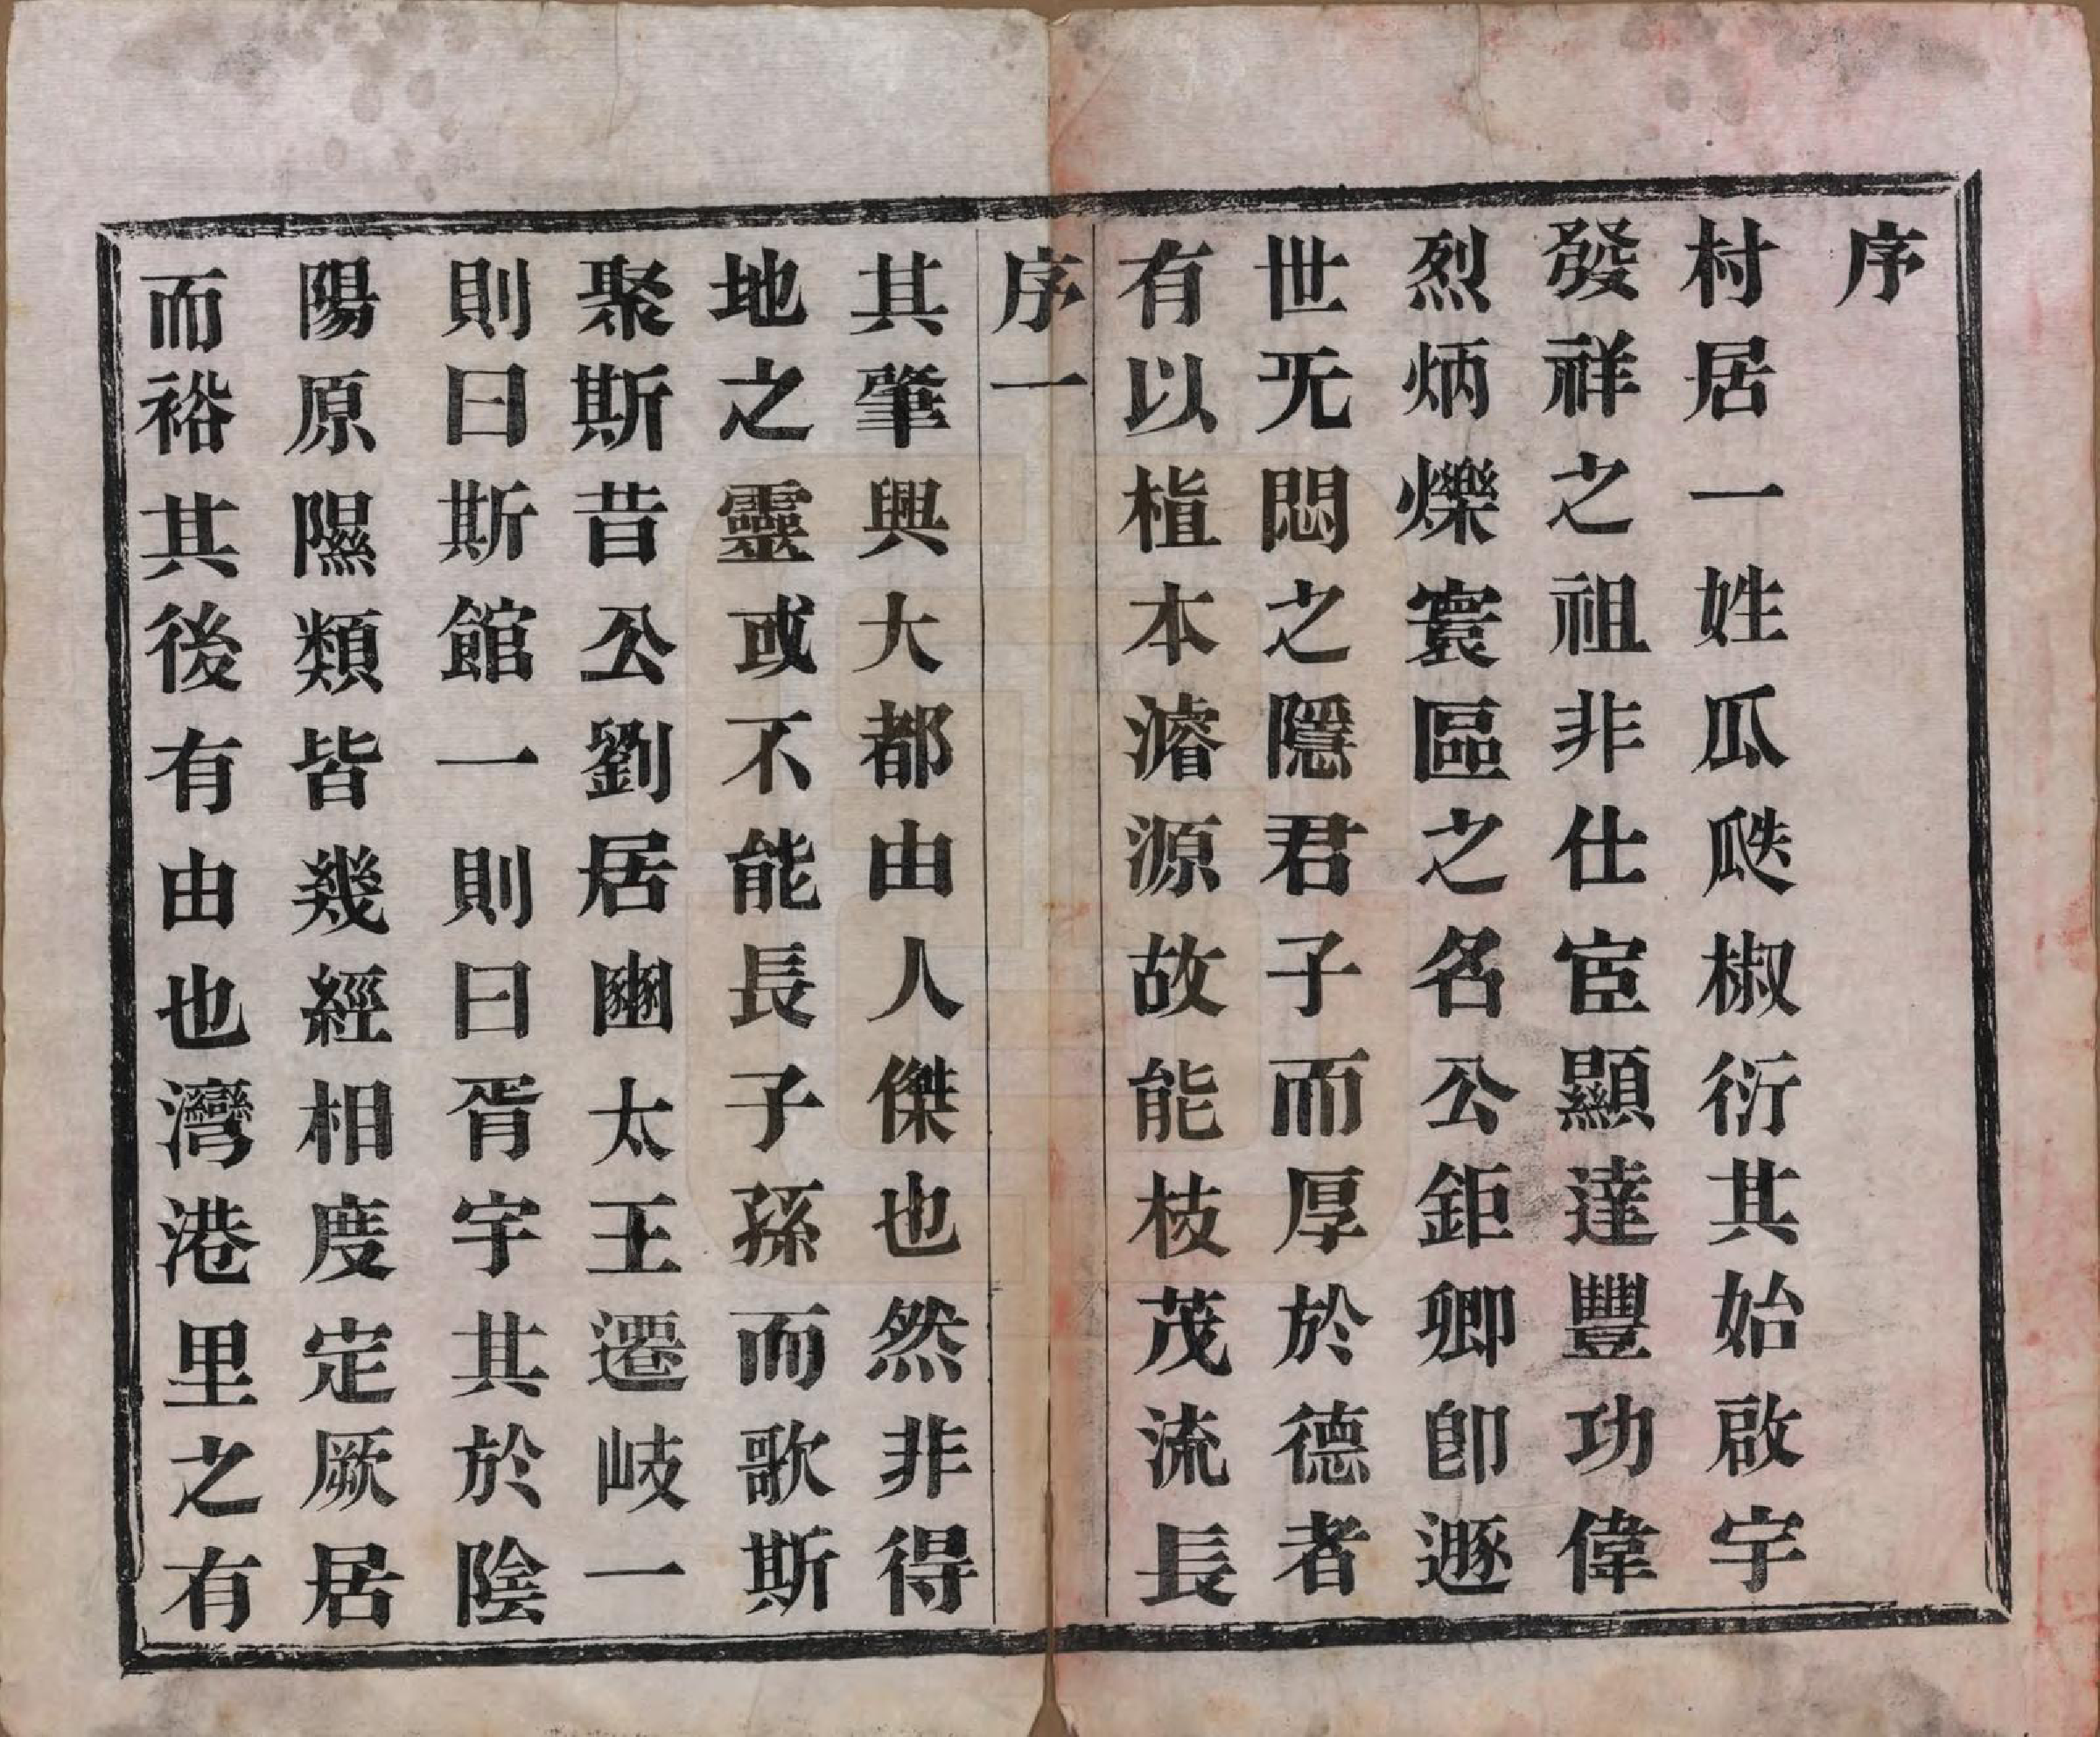 序
村居一姓瓜瓞椒衍其始啟宇
發祥之祖非仕宦顯達豐功偉
烈炳爍寰區之名公鉅卿卽遯
世无悶之隱君子而厚於德者
有以植本濬源故能枝茂流長
序一
其肇興大都由人傑也然非得
地之靈或不能長子孫而歌斯
聚斯昔公劉居豳太王遷岐一
則曰斯館一則曰胥宇其於陰
陽原隰類皆幾經相度定厥居
而裕其後有由也灣港里之有